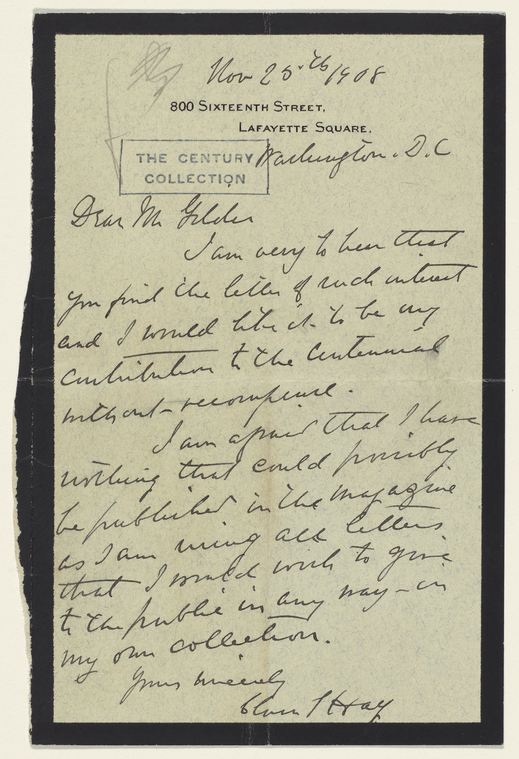 Nov 25th/1908
800 SIXTEENTH STREET,
LAFAYETTE SQUARE.
THE CENTURY
COLLECTION
Washington. D.C
Dear Mr Gilder
I am very to hear that
you find the letter of such interest
and I would like it to be my
contribution to the Centennial
without recompense.
I am afraid that I have
nothing that could possibly
be published in the magazine
as I am using all letters
that I would wish to give
to the public in any way - in
my own collection.
Yours sincerely
Clara S Hay